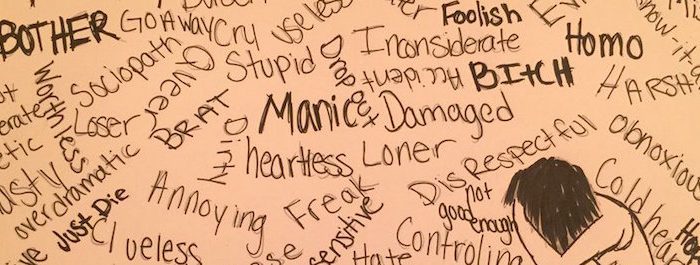 BOTHER
GO AWAY
Cry
useless
Foolish
Inconsiderate
Homo
Sociopath
Queer
Stupid
Drop out
Accident
BITCH
HARSH
Worthless
Loser
BRAT
Manic
Damaged
Dirty
heartless
Loner
DisRespectful
Obnoxious
overdramatic
Just Die
Annoying
Freak
not
good enough
Cold hea
Clueless
sensitive
Hate
Controling